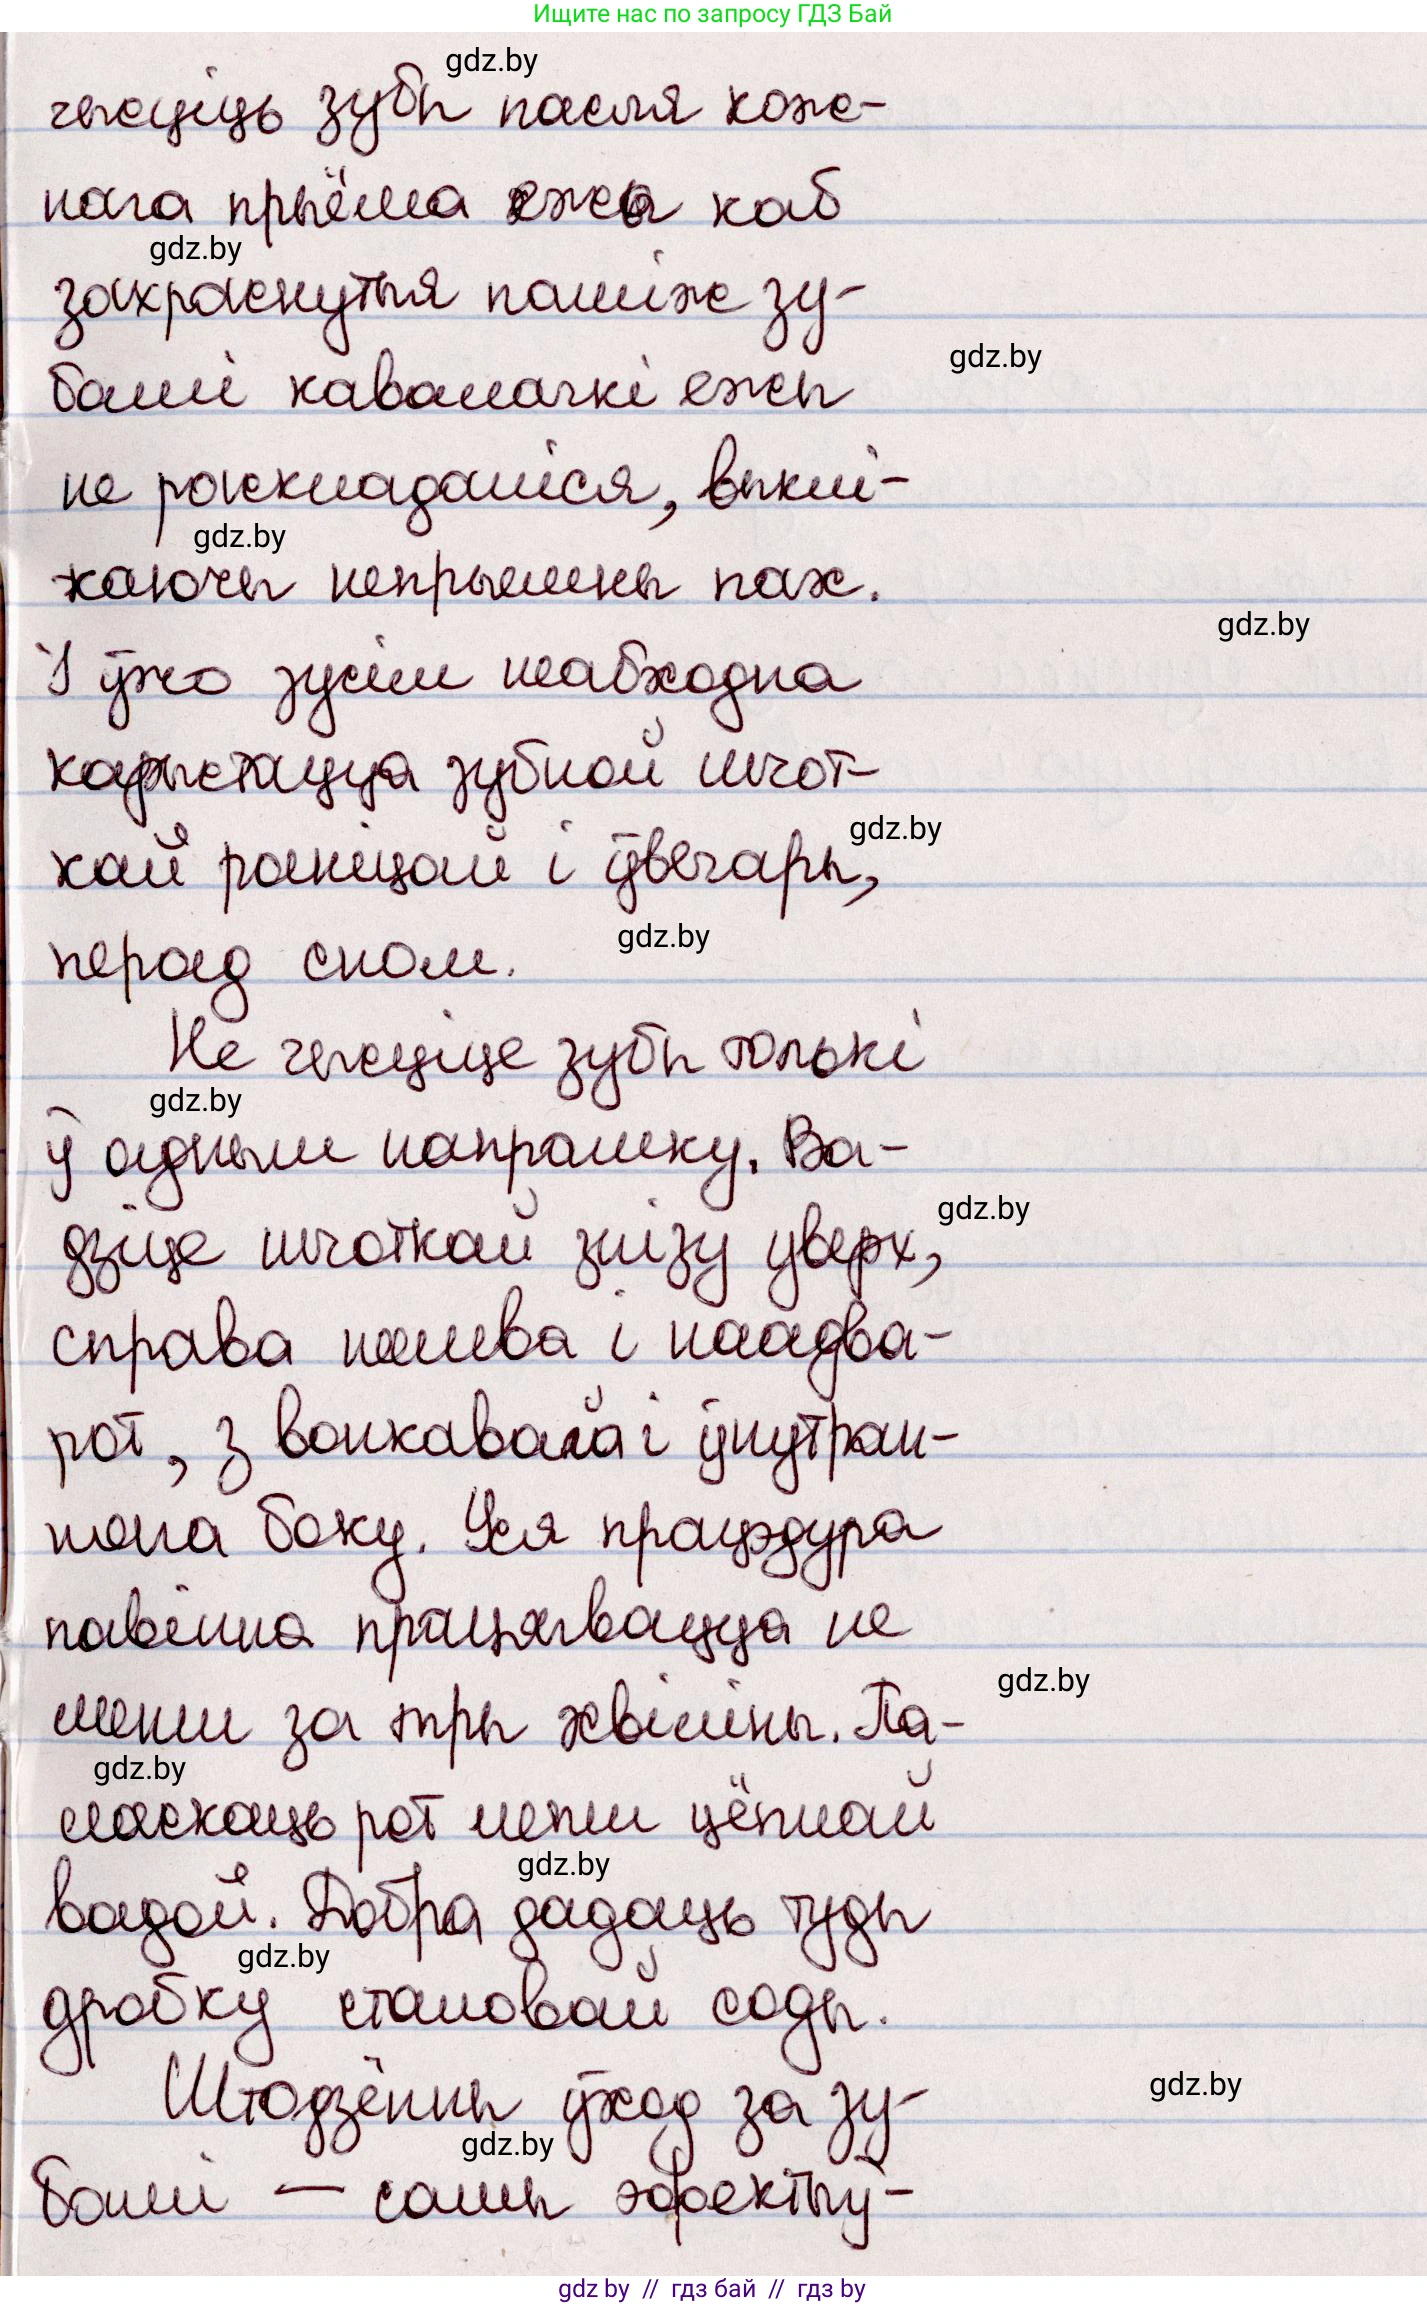 Ищите нас по запросу ГДЗ Бай
gdz.by
чысціць зубы пасля кож-
нага прыёма ежы каб
gdz.by
захраснутыя паміж зу-
gdz.by
бамі кавалачкі ежы
не раскладаліся, выклі-
gdz.by
каючы непрыемны пах.
gdz.by
І ўжо зусім неабходна
карыстацца зубной шчот-
gdz.by
кай раніцай і ўвечары,
gdz.by
перад сном.
Не чысціце зубы толькі
gdz.by
ў адным напрамку. Ва-
gdz.by
дзіце шчоткай знізу уверх,
справа налева і наадва-
рот, з вонкавага і ўнутран-
нага боку. Уся працэдура
павінна працягвацца не
gdz.by
менш за тры хвіліны. Па-
gdz.by
ласкаць рот лепш цёплай
gdz.by
вадой. Добра дадаць туды
gdz.by
дробку сталовай соды.
gdz.by
Штодзённы ўход за зу-
gdz.by
бамі — самы эфектыў-
gdz by // гдз бай // гдз by